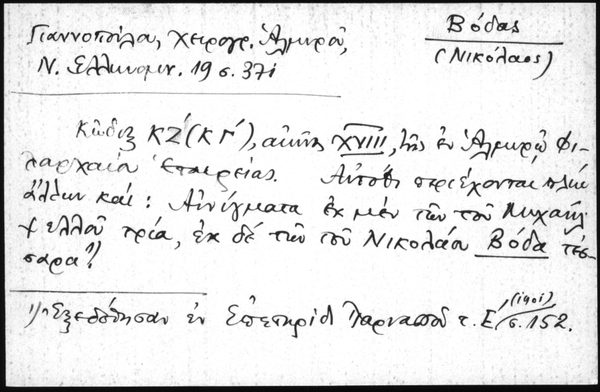 Γιαννοπούλου, Χειρογρ. Ἁλμυροῦ,
Ν. Ἑλληνομν. 19 σ. 371
Βόδας
(Νικόλαος)
Κῶδιξ ΚΖ΄ (ΚΓ΄), αἰῶνος XVIII, τῆς ἐν Ἁλμυρῷ Φι-
λαρχαίου Ἑταιρείας. Αὐτόθι περιέχονται πλὴν
ἄλλων καί: Αἰνίγματα ἐκ μὲν τῶν τοῦ Μιχαὴλ
Ψελλοῦ τρία, ἐκ δὲ τῶν τοῦ Νικολάου Βόδα τέσ-
σαρα 1)
1) Ἐξεδόθησαν ἐν Ἐπετηρίδι Παρνασσοῦ τ. Ε΄ (1901) σ. 152.